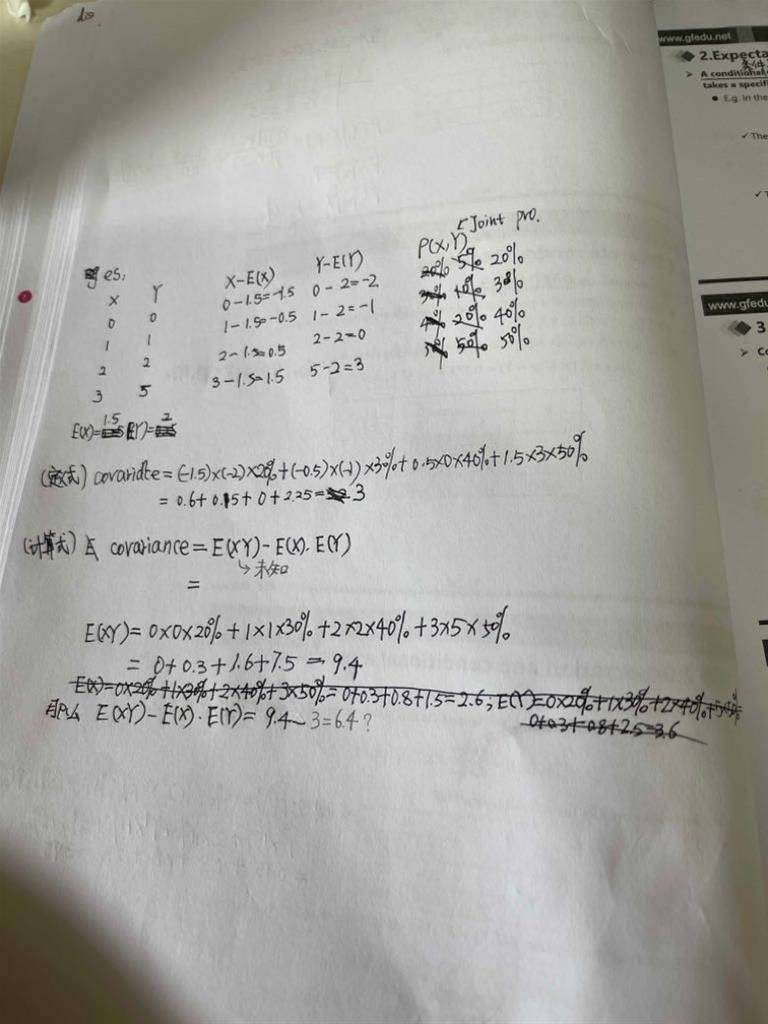 www.gfedu.net
2.Expecta
条件
A conditional
takes a specifi
E.g. In the
The
www.gfedu
3
Co
es:
X Y X-E(X) Y-E(Y) P(X,Y) Joint pro.
0 0 0-1.5=-1.5 0-2=-2 20% 5% 20%
1 1 1-1.5=-0.5 1-2=-1 3% 10% 30%
2 2 2-1.5=0.5 2-2=0 4% 20% 40%
3 5 3-1.5=1.5 5-2=3 50% 50%
E(X)=1.5 E(Y)=2
(定义式) covariate=(-1.5)×(-2)×20%+(-0.5)×(-1)×30%+0.5×0×40%+1.5×3×50%
=0.6+0.15+0+2.25=3
(计算式) covariance=E(XY)-E(X).E(Y)
↳未知
=
E(XY)=0×0×20%+1×1×30%+2×2×40%+3×5×50%
=0+0.3+1.6+7.5=9.4
E(X)=0×20%+1×30%+2×40%+3×50%=0+0.3+0.8+1.5=2.6; E(Y)=0×20%+1×30%+2×40%+5×50%
0+0.3+0.8+2.5=3.6
所以 E(XY)-E(X).E(Y)=9.4-3=6.4?